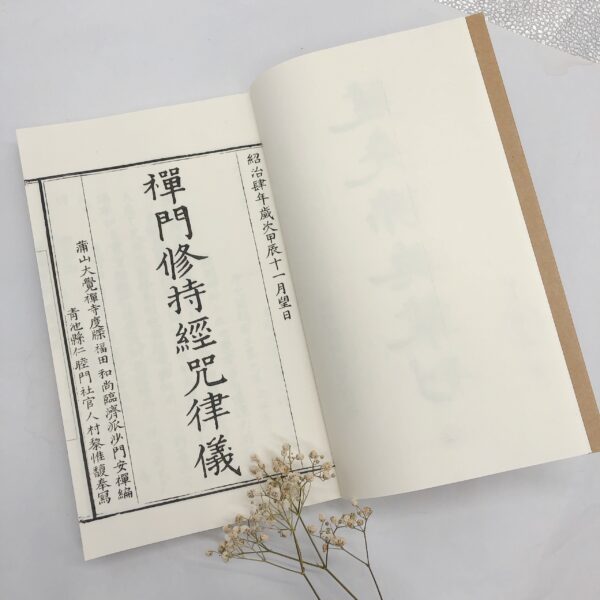 紹治肆年歲次甲辰十一月望日
禪門修持經咒律儀
蒲山大覺禪寺度牒福田和尚臨濟派沙門安禪編
青池縣仁睦門社官人村黎惟馥奉寫